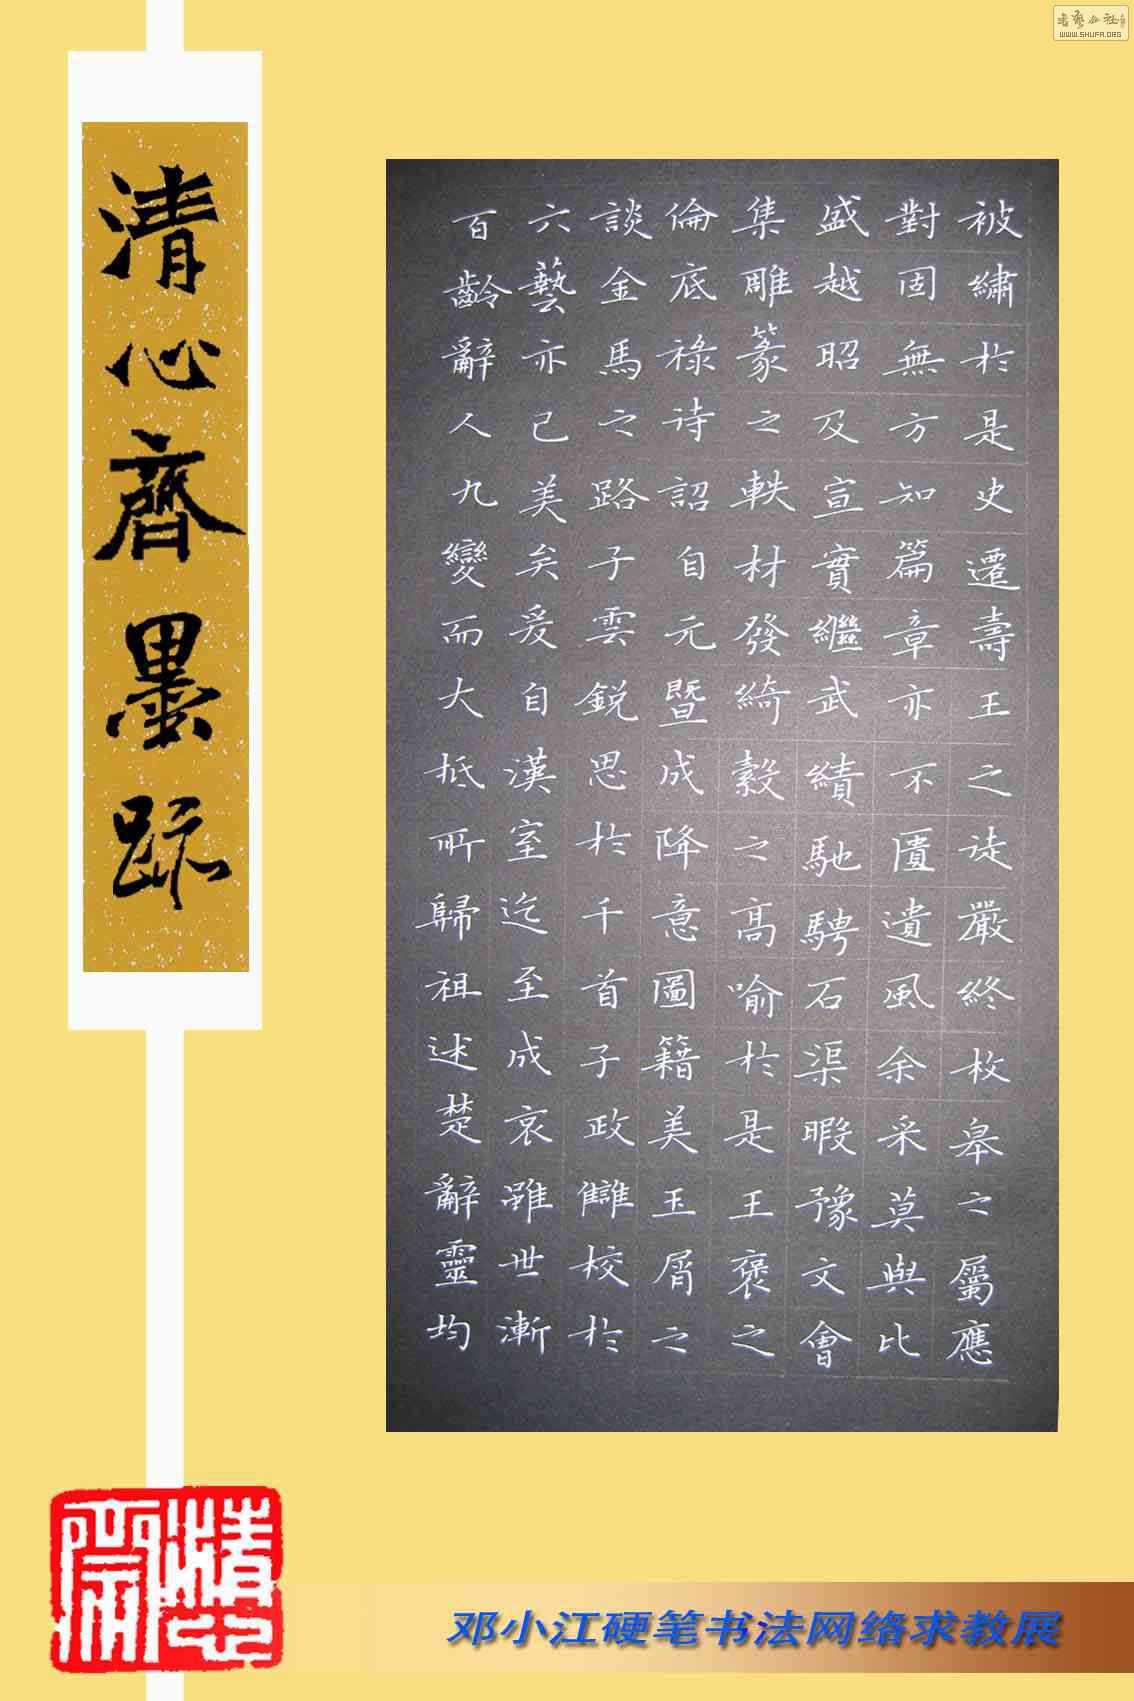 书艺公社
WWW.SHUFA.ORG
清心齊墨跡
被繡於是史遷壽王之徒嚴終枚皋之屬應
對固無方知篇章亦不匱遺風余采莫與比
盛越昭及宣實繼武績馳騁石渠暇豫文會
集雕篆之軼材發綺縠之高喻於是王褒之
倫底祿诗詔自元暨成降意圖籍美玉屑之
談金馬之路子雲銳思於千首子政讎校於
六藝亦已美矣爰自漢室迄至成哀雖世漸
百齡辭人九變而大抵所歸祖述楚辭靈均
清心齋
邓小江硬笔书法网络求教展